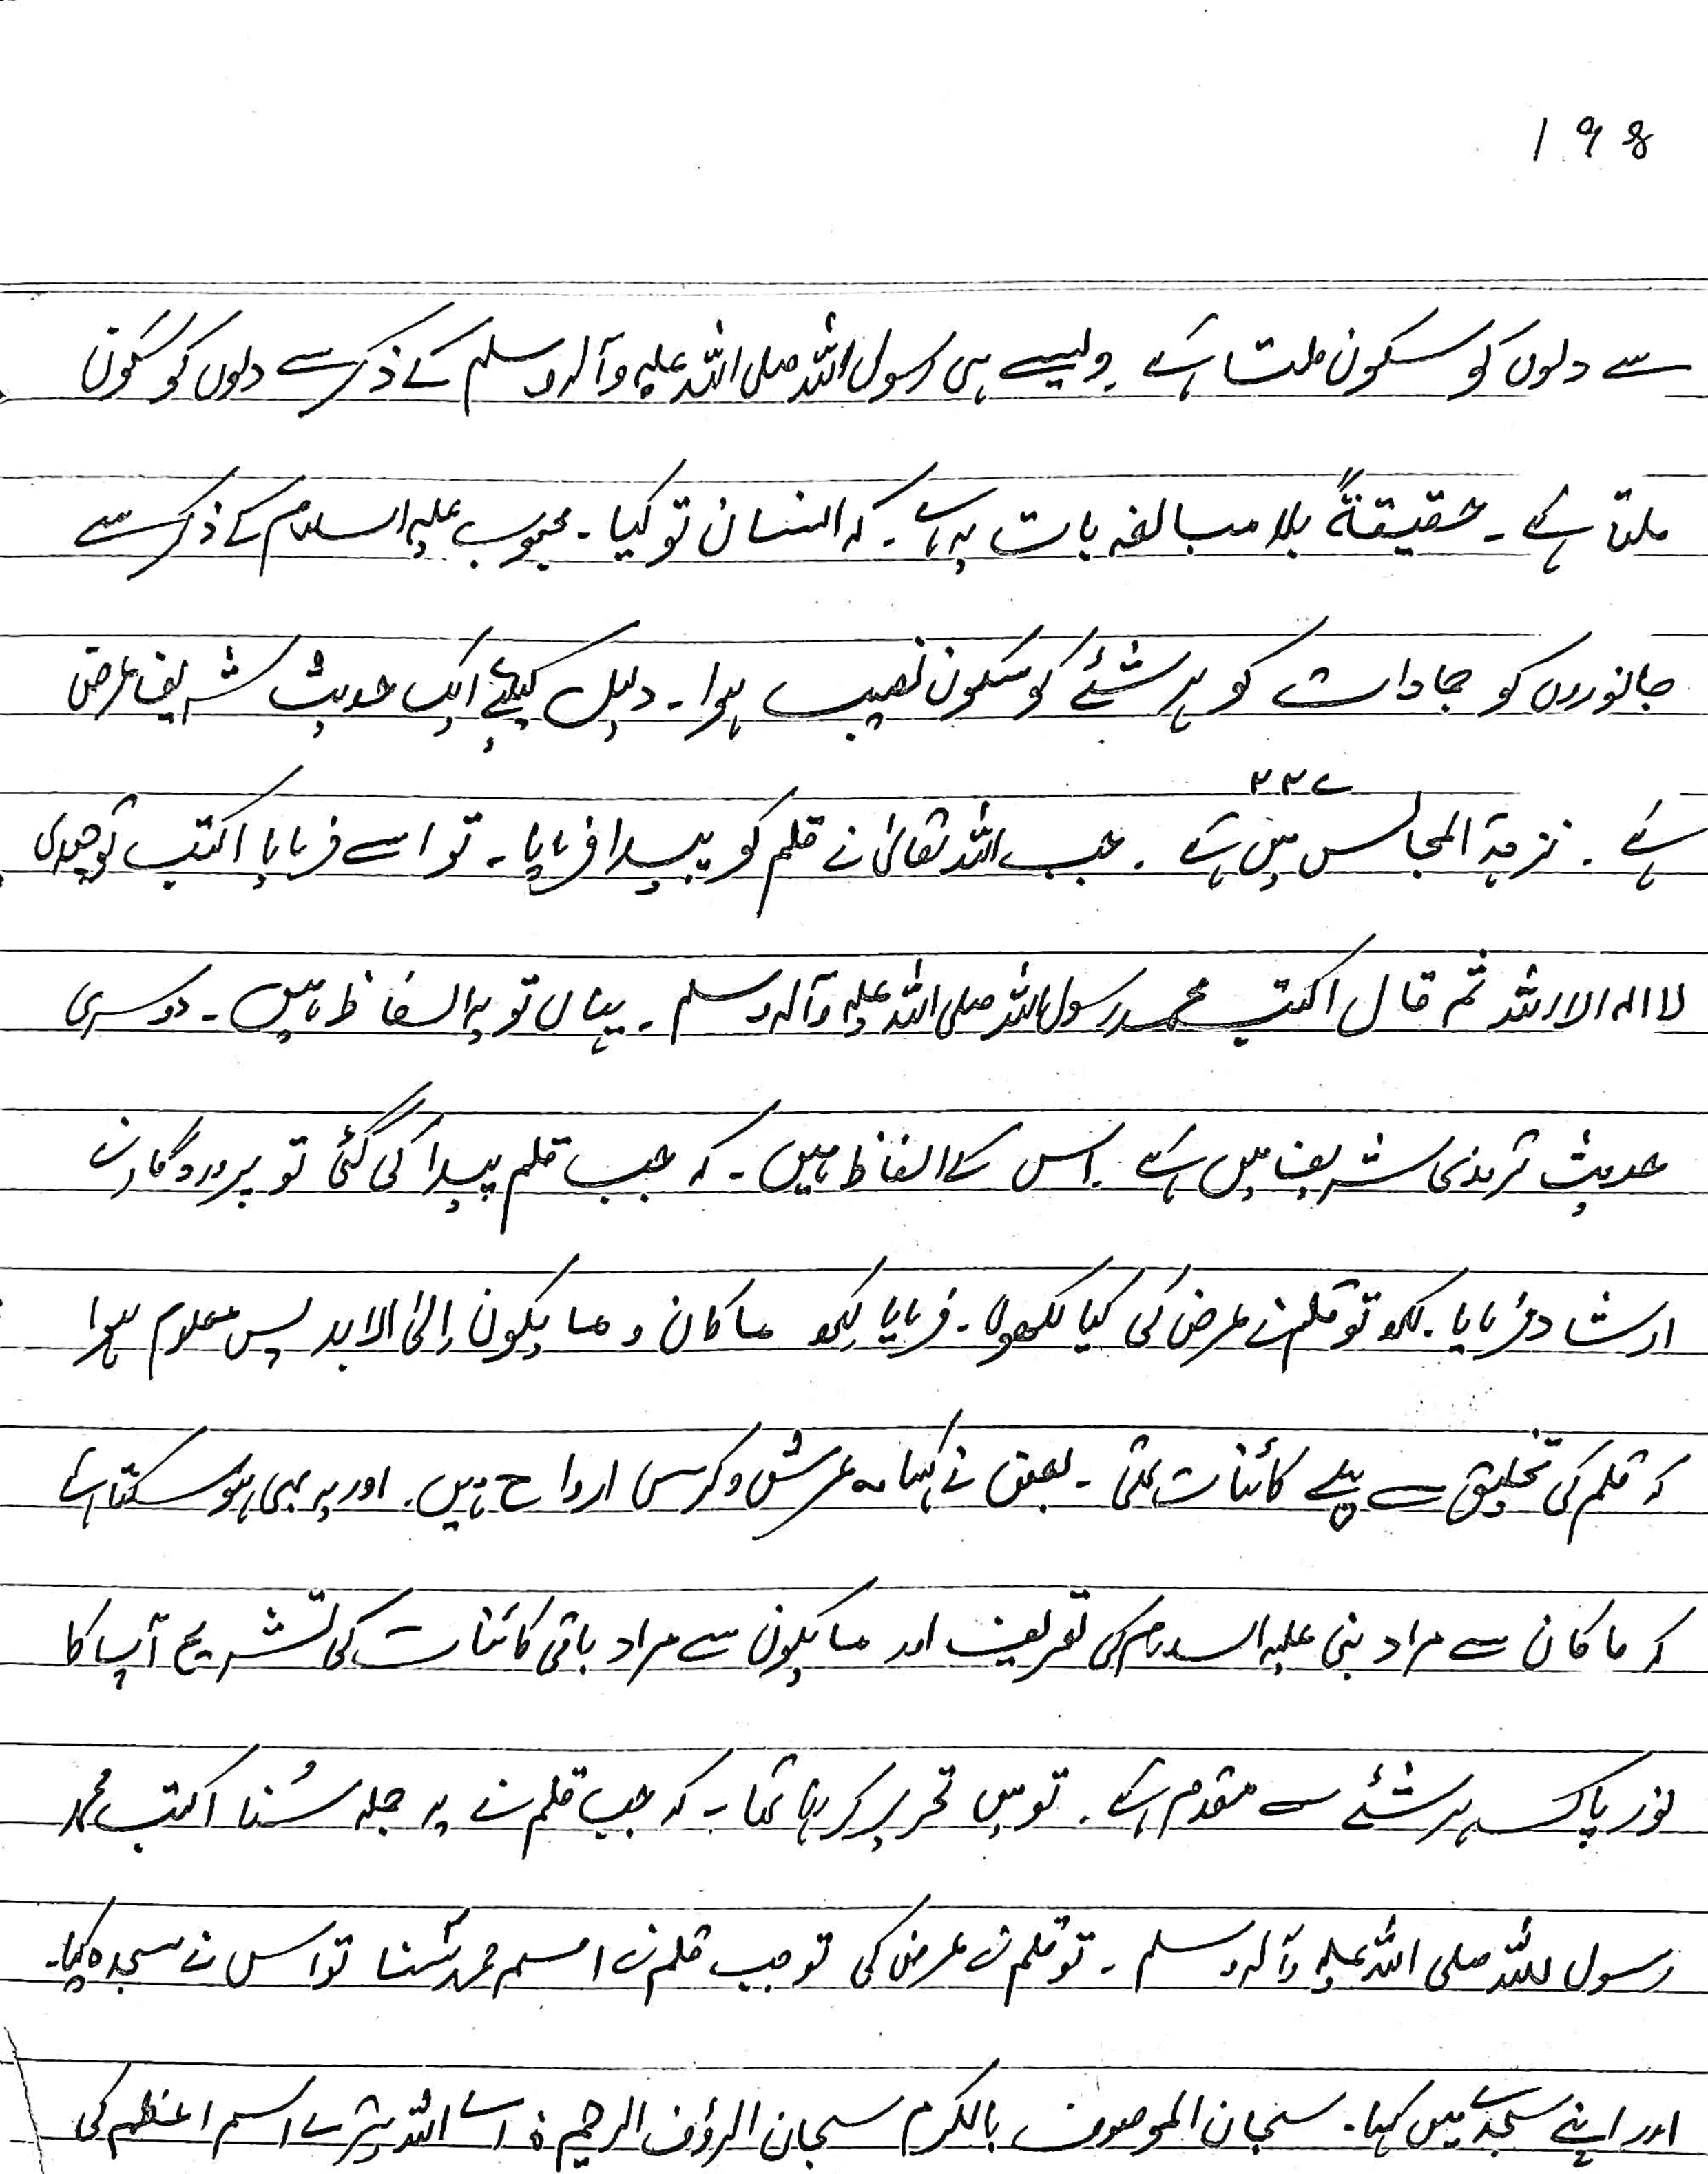 198
سے دلوں کو سکون ملتا ہے ۔ ویسے ہی رسول اللہ صلی اللہ علیہ وآلہ وسلم کے ذکر سے دلوں کو سکون
ملتا ہے ۔ حقیقۃً بلا مبالغہ بات یہ ہے ۔ کہ انسان تو کیا ۔ محبوب علیہ السلام کے ذکر سے
جانوروں کو جمادات کو ہر شئے کو سکون نصیب ہوا ۔ دلیل کیلئے ایک حدیث شریف عرض
ہے ۔ نزہۃ المجالس میں ہے ۔ جب اللہ تعالیٰ نے قلم کو پیدا فرمایا ۔ تو اسے فرمایا اکتب توحیدی
لا الہ الا اللہ ثم قال اکتب محمد رسول اللہ صلی اللہ علیہ وآلہ وسلم ۔ یہاں تو یہ الفاظ ہیں ۔ دوسری
حدیث ترمذی شریف میں ہے ۔ اس کے الفاظ ہیں ۔ کہ جب قلم پیدا کی گئی تو پروردگار نے
ارشاد فرمایا ۔ لکھ تو قلم نے عرض کی کیا لکھوں ۔ فرمایا لکھ ما کان و ما یکون الیٰ الابد پس معلوم ہوا
کہ قلم کی تخلیق سے پہلے کائنات تھی ۔ بعض نے کہا عرش و کرسی ارواح ہیں ۔ اور یہ بھی ہو سکتا ہے
کہ ما کان سے مراد نبی علیہ السلام کی تعریف اور ما یکون سے مراد باقی کائنات کی تشریح آپ کا
نور پاک ہر شئے سے مقدم ہے ۔ تو میں تحریر کر رہا تھا ۔ کہ جب قلم نے یہ جملہ سُنا اکتب محمد
رسول اللہ صلی اللہ علیہ وآلہ وسلم ۔ تو قلم نے عرض کی تو جب قلم نے اسم محمد سُنا تو اس نے سجدہ کیا ۔
اور اپنے سجدے میں کہا ۔ سبحان الموصوف بالکرم سبحان الرؤف الرحیم ۃ اے اللہ تیرے اسم اعظم کی